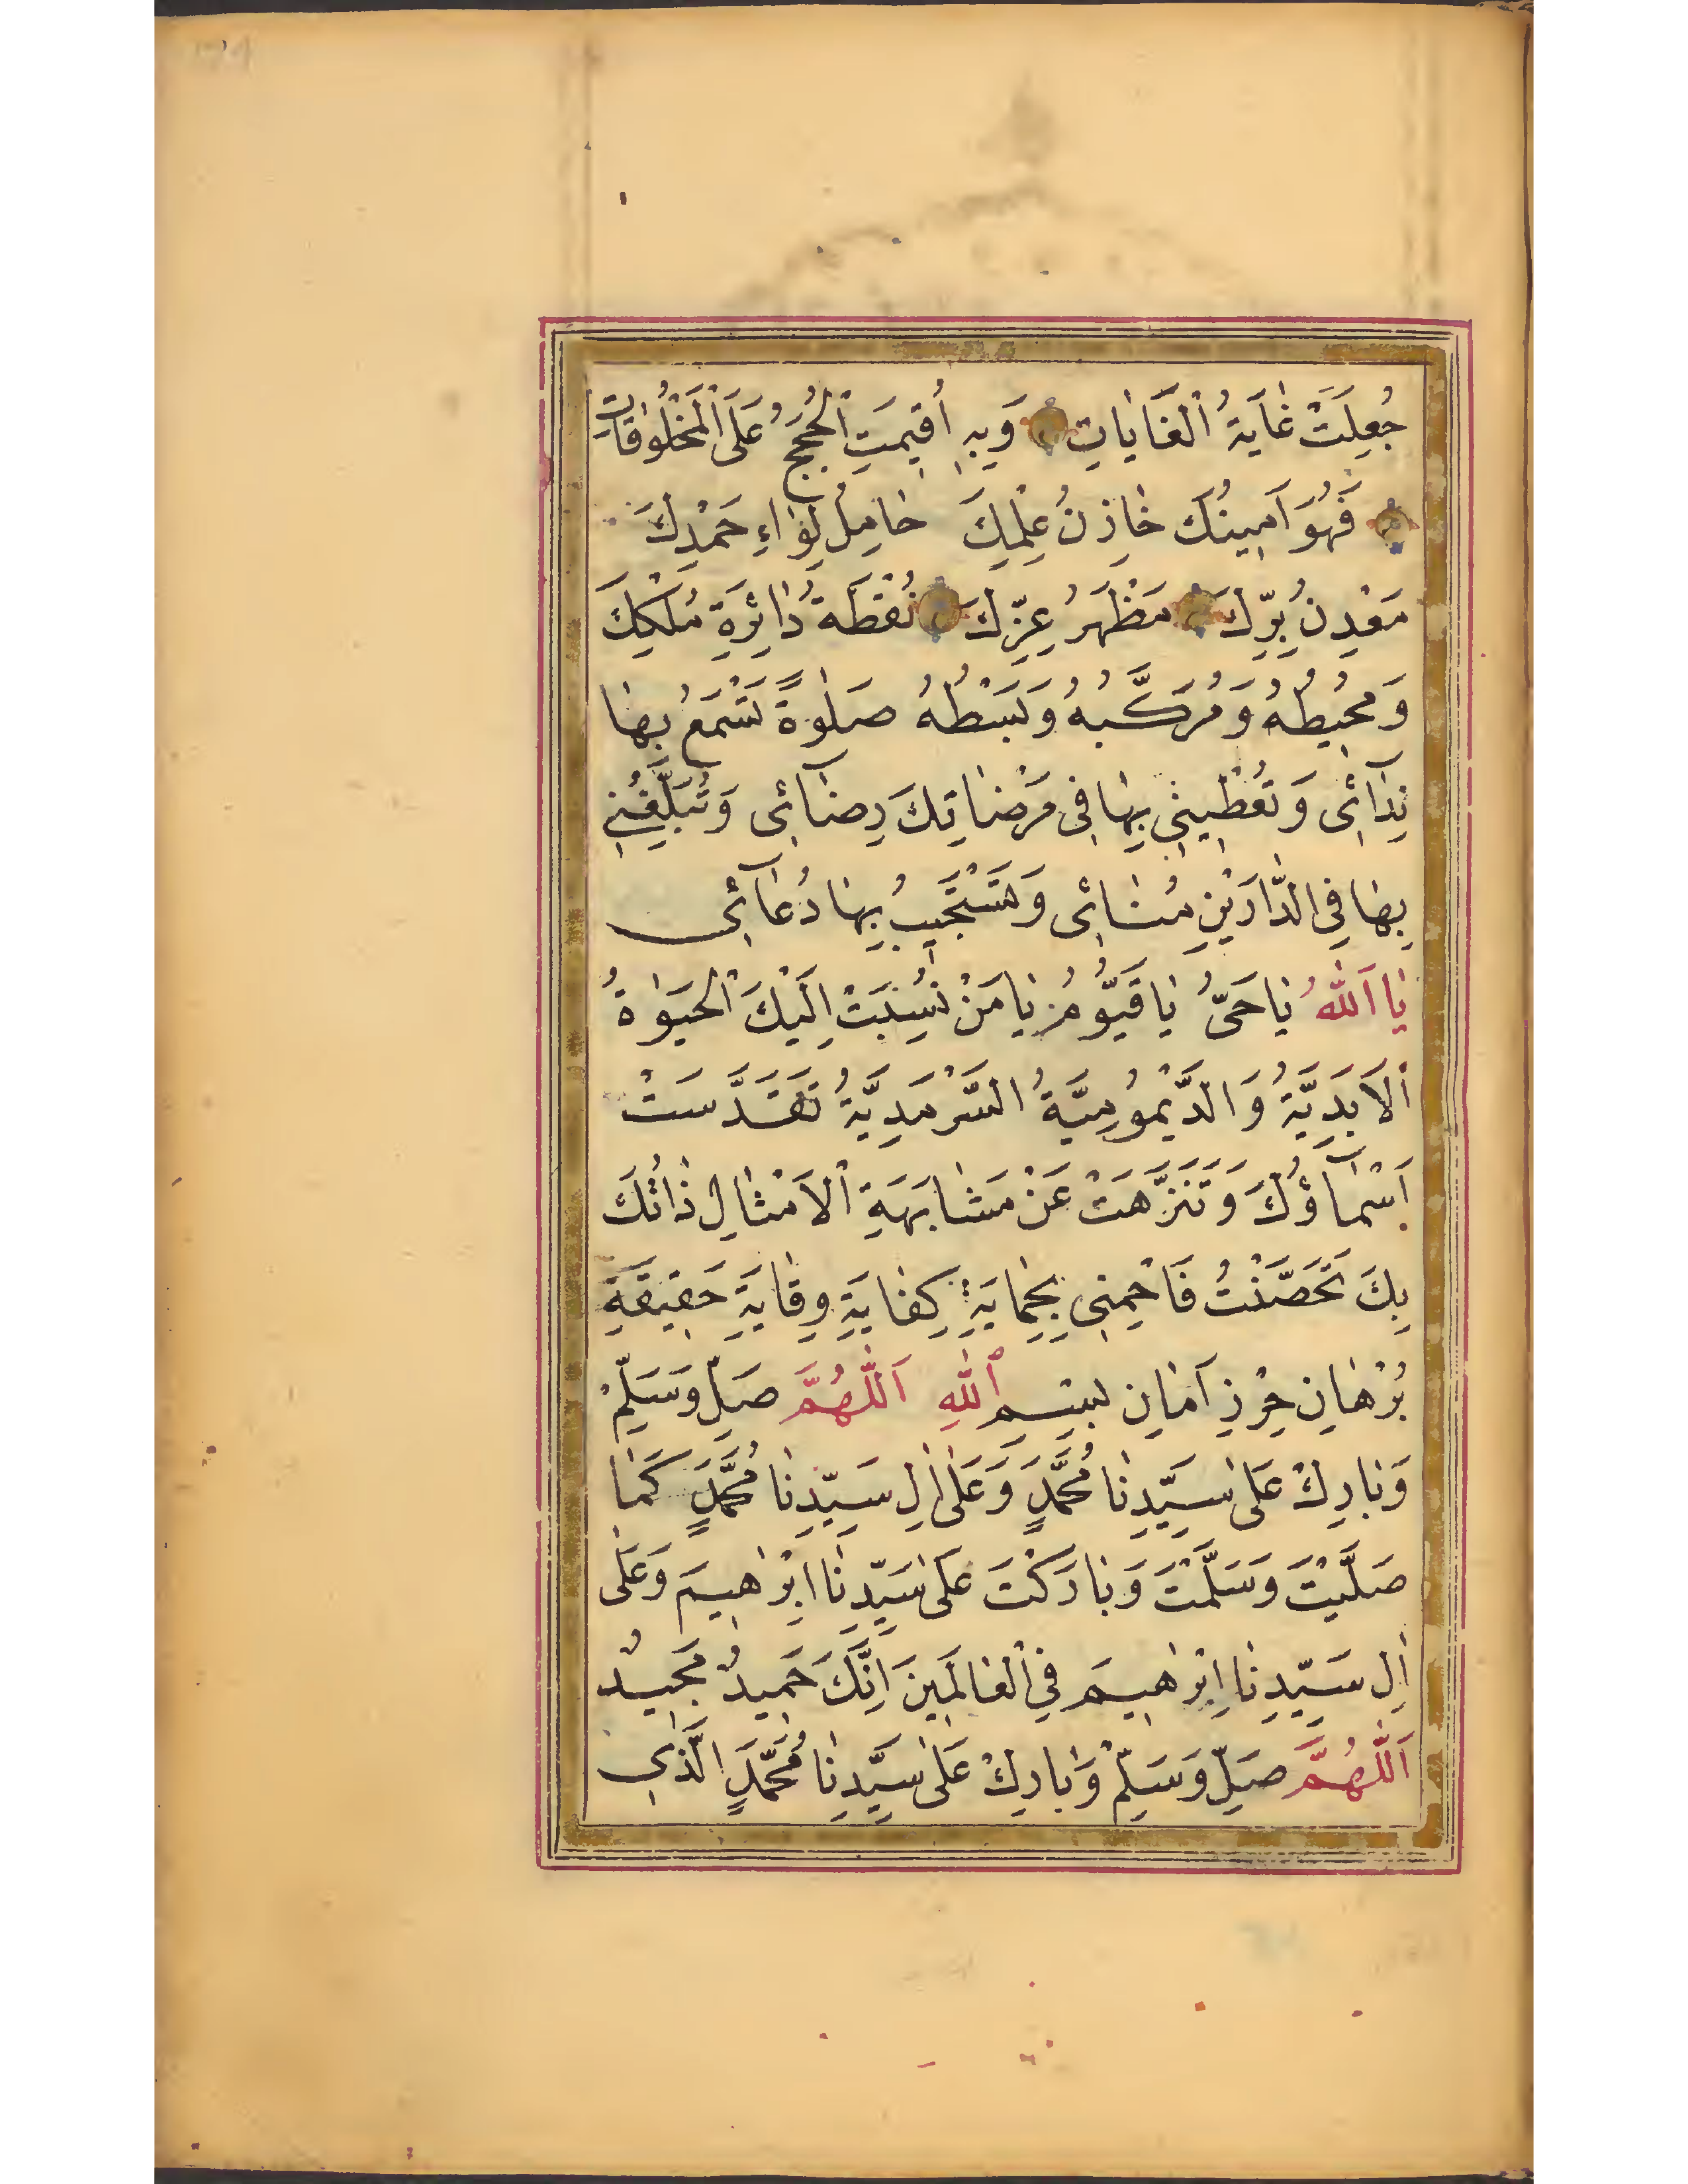 جُعِلَتْ غَايَةُ الْغَايَاتِ وَبِهِ أُقِيمَتِ الْحُجَجُ عَلَى الْمَخْلُوقَاتِ
فَهُوَ اَمِينُكَ خَازِنُ عِلْمِكَ حَامِلُ لِوَاءِ حَمْدِكَ
مَعْدِنُ بِرِّكَ مَظْهَرُ عِزِّكَ نُقْطَةُ دَائِرَةِ مُلْكِكَ
وَمُحِيطُهُ وَمُرَكَّبُهُ وَبَسْطُهُ صَلٰوةً تَسْمَعُ بِهَا
نِدَآئِى وَتُعْطِينِى بِهَا فِى مَرْضَاتِكَ رِضَآئِى وَتُبَلِّغُنِى
بِهَا فِى الدَّارَيْنِ مُنَائِى وَتَسْتَجِيبُ بِهَا دُعَآئِى
يَا اَللّٰهُ يَا حَىُّ يَا قَيُّومُ يَا مَنْ نُسِبَتْ اِلَيْكَ الْحَيٰوةُ
الْاَبَدِيَّةُ وَالدَّيْمُومِيَّةُ السَّرْمَدِيَّةُ تَقَدَّسَتْ
اَسْمَآؤُكَ وَتَنَزَّهَتْ عَنْ مَشَابَهَةِ الْاَمْثَالِ ذَاتُكَ
بِكَ تَحَصَّنْتُ فَاحْمِنِى بِحِمَايَةِ كِفَايَةِ وِقَايَةِ حَقِيقَةِ
بُرْهَانِ حِرْزِ اَمَانِ بِسْمِ اللّٰهِ اَللّٰهُمَّ صَلِّ وَسَلِّمْ
وَبَارِكْ عَلٰى سَيِّدِنَا مُحَمَّدٍ وَعَلٰى اٰلِ سَيِّدِنَا مُحَمَّدٍ كَمَا
صَلَّيْتَ وَسَلَّمْتَ وَبَارَكْتَ عَلٰى سَيِّدِنَا اِبْرٰهِيمَ وَعَلٰى
اٰلِ سَيِّدِنَا اِبْرٰهِيمَ فِى الْعَالَمِينَ اِنَّكَ حَمِيدٌ مَجِيدٌ
اَللّٰهُمَّ صَلِّ وَسَلِّمْ وَبَارِكْ عَلٰى سَيِّدِنَا مُحَمَّدٍ الَّذِى